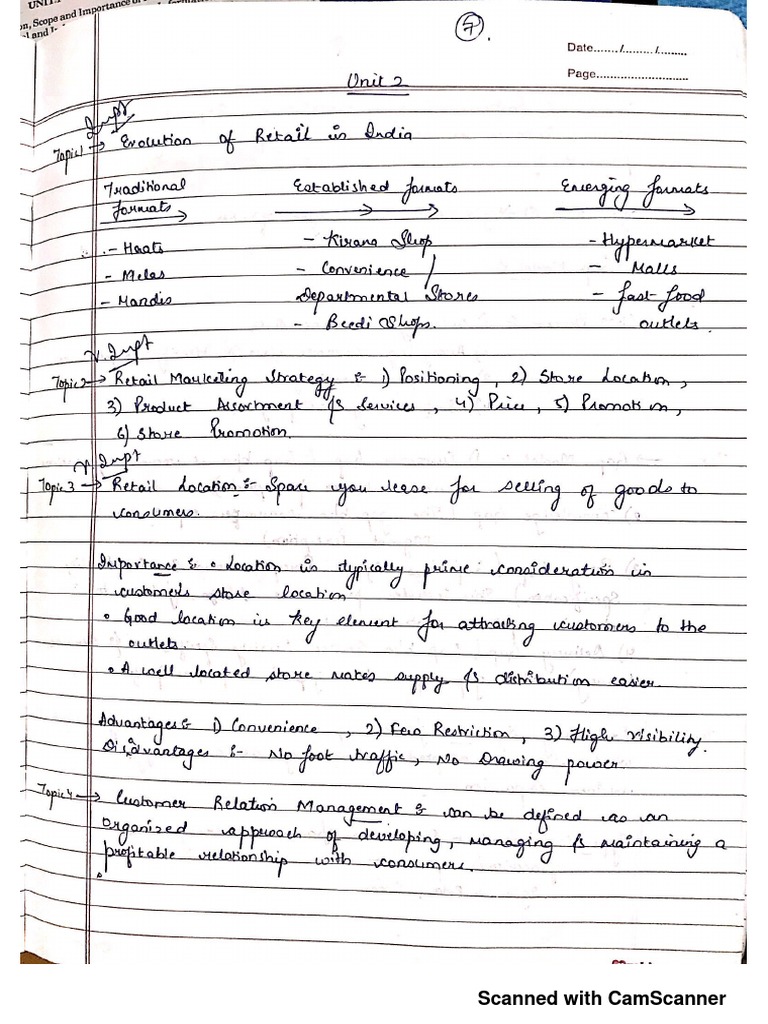 UNIT
n, Scope and Importance of
l and I
7.
Date......./........./.........
Page...........................
Unit 2
Impt
Topic 1 → Evolution of Retail in India
Traditional formats
Established formats
Emerging formats
- Haats
- Kirana Shop
- Hypermarket
- Melas
- Convenience /
- Malls
- Mandis
Departmental Stores
- fast-food
- Beedi Shops.
outlets.
V. Impt
Topic 2 → Retail Marketing Strategy :- 1) Positioning, 2) Store Location,
3) Product Assortment & Services, 4) Price, 5) Promotion,
6) Store Promotion.
V. Impt
Topic 3 → Retail Location :- Space you lease for selling of goods to
consumers.
Importance :- • Location is typically prime consideration in
customers store location
• Good location is key element for attracting customers to the
outlets.
• A well located store makes supply & distribution easier
Advantages :- 1) Convenience, 2) Few Restriction, 3) High visibility.
Disadvantages :- No foot traffic, No Drawing power
Topic 4 → Customer Relation Management :- can be defined as an
organized approach of developing, managing & maintaining a
profitable relationship with consumers.
Scanned with CamScanner